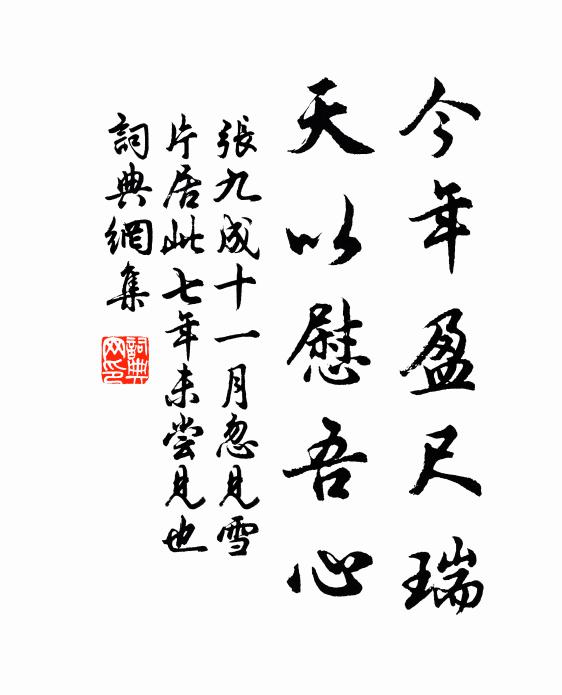 今年盈尺瑞
天以慰吾心
張九成十一月忽見雪
片居此七年未尝見也
詞典網集
詞典网印